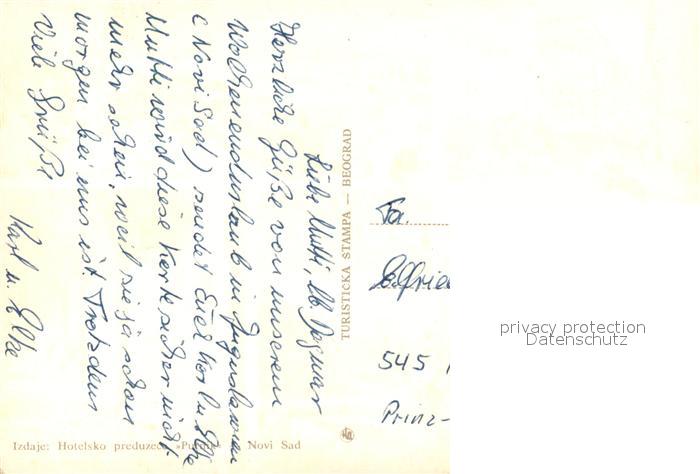 Liebe Mutti, lb. Dagmar
Herzliche Grüße von unserem
Wochenendurlaub in Jugoslawien
(Novi Sad) sendet Euch Karl u. Elke
Mutti wird diese Karte sicher nicht
mehr sehen, weil sie ja schon
morgen bei uns ist. Trotzdem
Viele Grüße
Karl u. Elke
TURISTICKA STAMPA — BEOGRAD
Fa.
Elfrie
545
Prinz-
privacy protection
Datenschutz
Izdaje: Hotelsko preduzeće »Putnik« Novi Sad